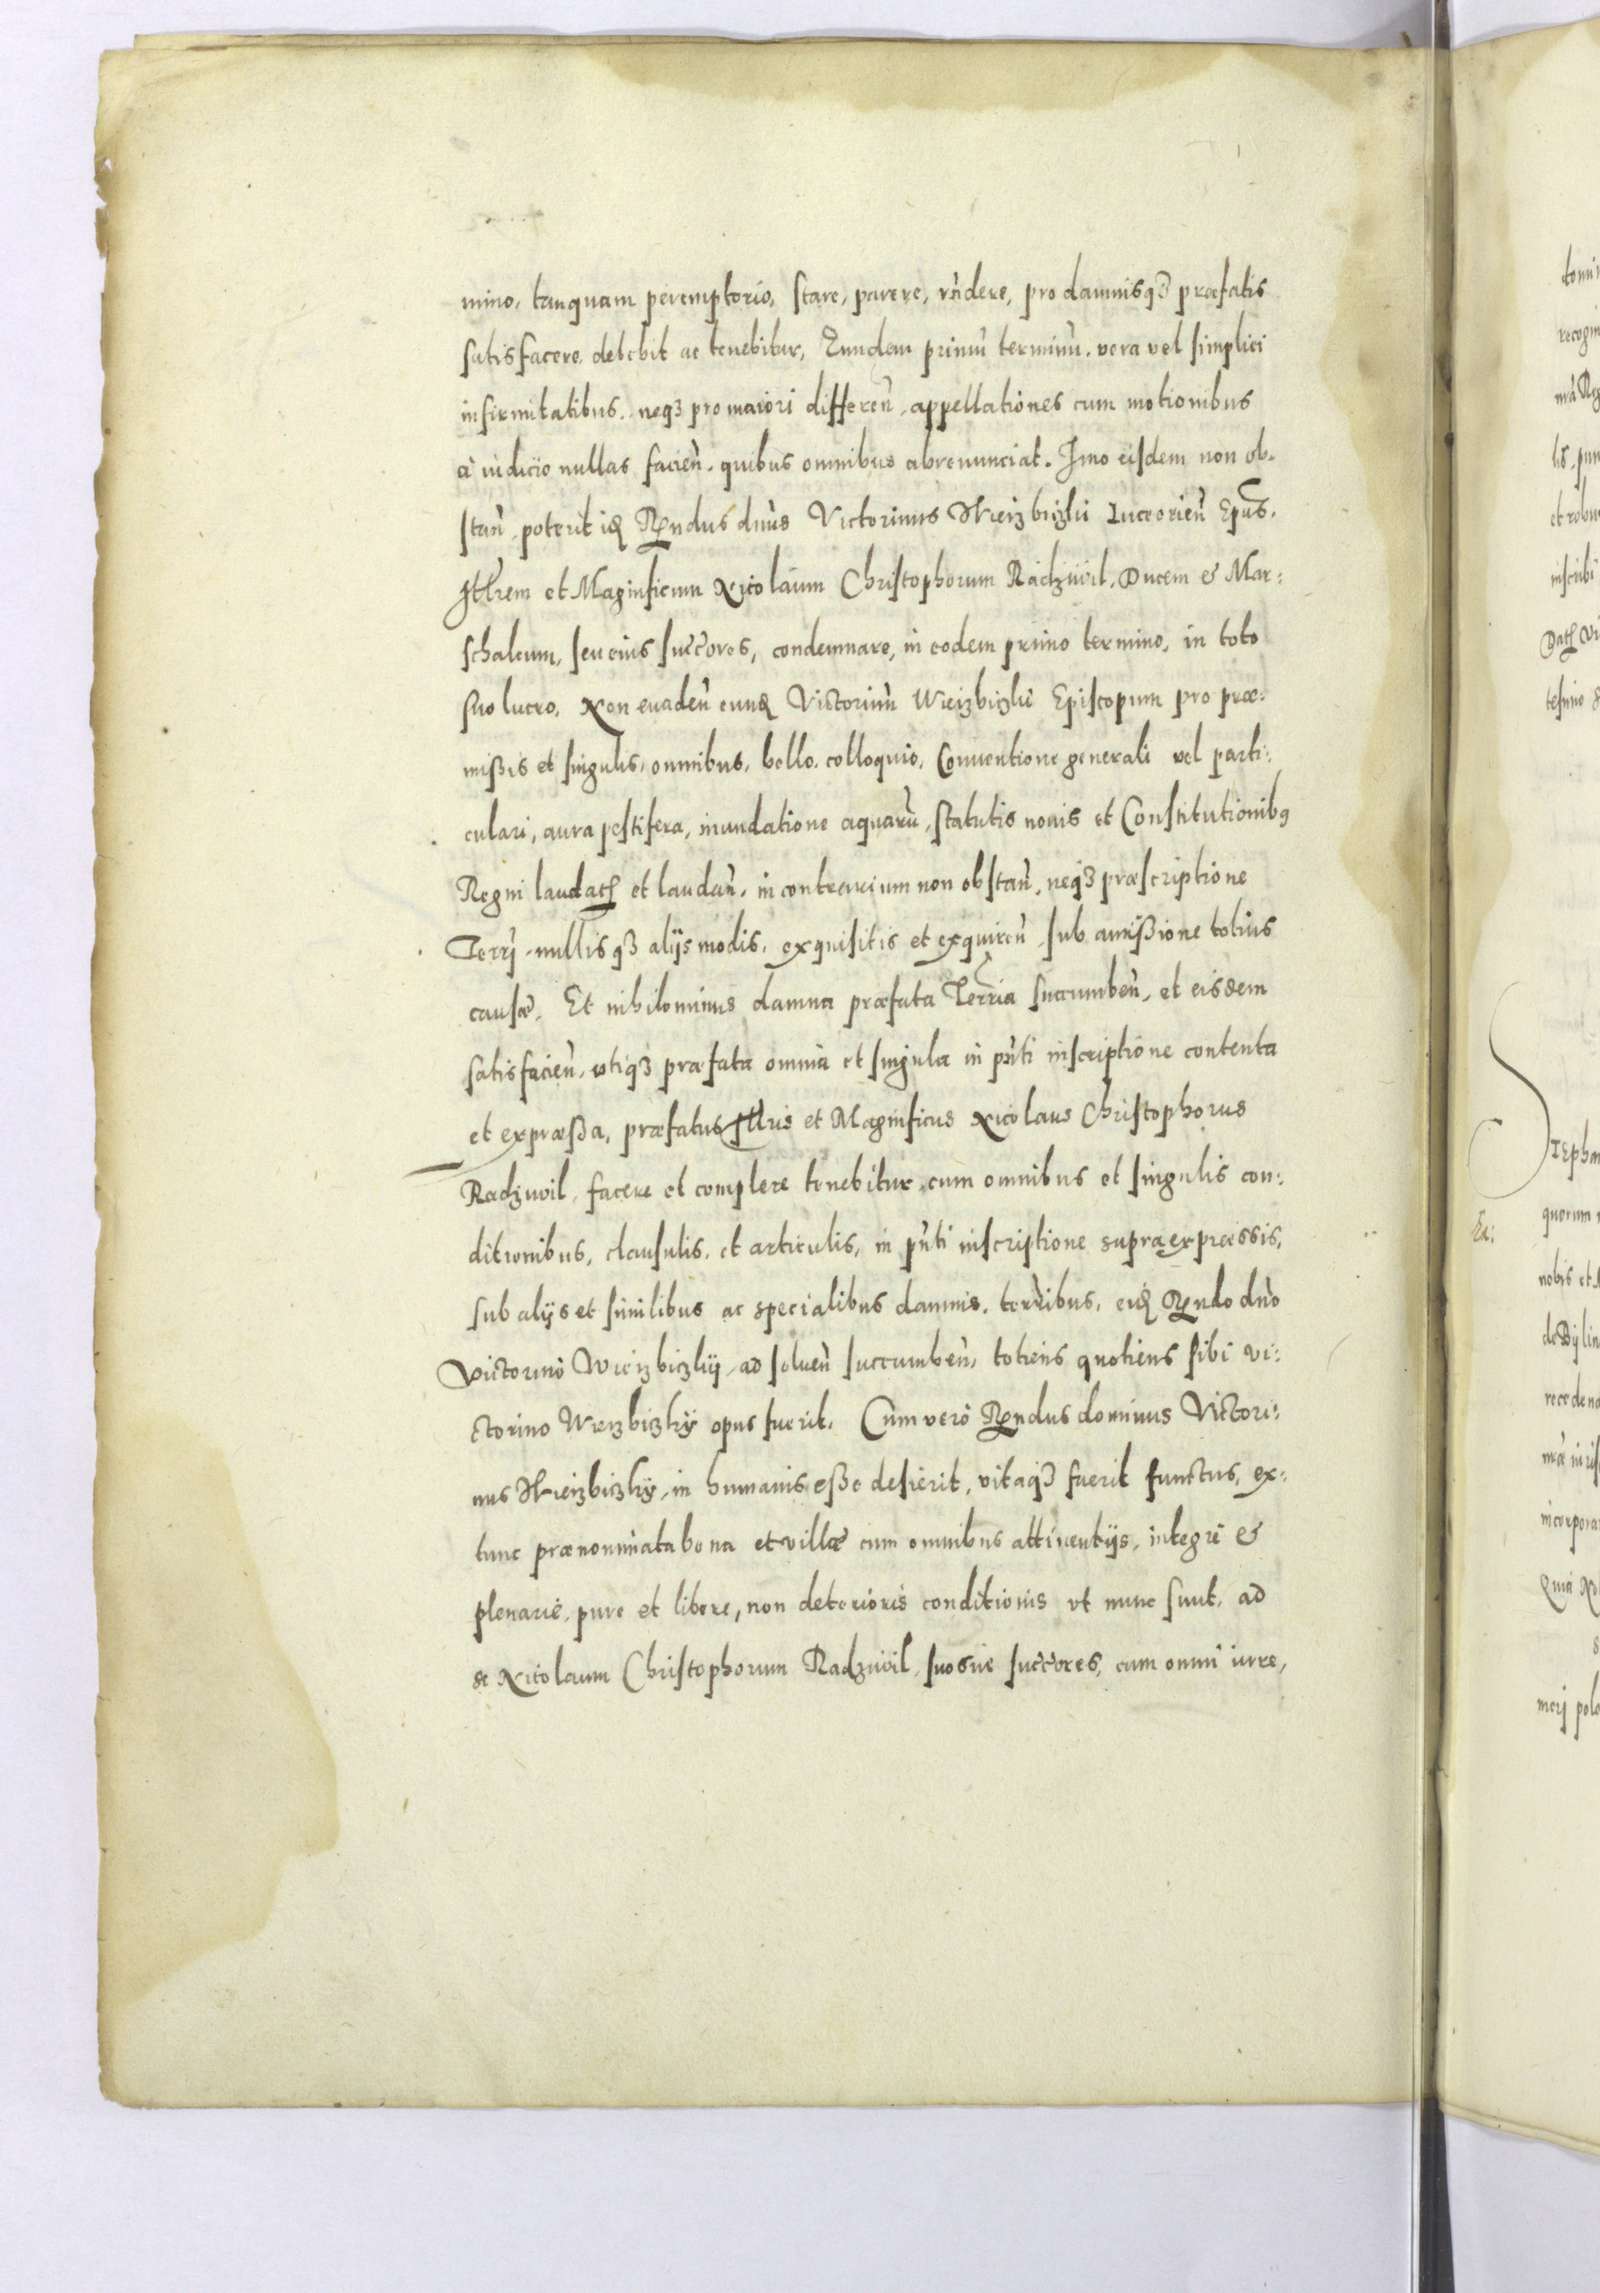 mino, tanquam peremptorio, stare, parere, rn̄dere, pro damnisqȝ præfatis
satisfacere debebit ac tenebitur, Eundem primũ terminũ, vera vel simplici
infirmitatibus, neqȝ pro maiori differen̄, appellationes cum motionibus
à iudicio nullas facien̄, quibus omnibus abrenunciat. Imo eisdem non ob-
stan̄, poterit Rn̄dus dnūs Victorinus Wierzbiczki Luceorien̄ Epūs,
Illrem et Magnificum Nicolaum Christophorum Radziwil, Ducem & Mar:
schalcum, seu eius succ̄ores, condemnare, in eodem primo termino, in toto
suo lucro, Non euaden̄ Victorinũ Wierzbiczki Episcopum pro præ:
mißis et singulis, omnibus, bello, colloquio, Conuentione generali vel parti:
culari, aura pestifera, inundatione aquarũ, statutis nouis et Constitutionibꝯ
Regni laudatꝭ et laudan̄, in contrarium non obstan̄, neqȝ præscriptione
Terrj, nullisqȝ alijs modis, exquisitis et exquiren̄, sub amißione totius
causæ, Et nihilominus damna præfata Terria succumben̄, et eisdem
satisfacien̄, vtiqȝ præfata omnia et singula in pn̄ti inscriptione contenta
et expræßa, præfatus Illris et Magnificus Nicolaus Christophorus
Radziwil, facere et complere tenebitur, cum omnibus et singulis con:
ditionibus, clausulis, et articulis, in pn̄ti inscriptione supra expressis,
sub alijs et similibus ac specialibus damnis, terr̄ibus, Rn̄do dn̄o
Victorino Wierzbiczkij, ad soluen̄ succumben̄, totiens quotiens sibi Vi:
ctorino Wierzbiczkij opus fuerit. Cum verò Rn̄dus dominus Victori:
nus Wierzbiczkij, in humanis eße desierit, vitaqȝ fuerit functus, ex:
tunc prænominata bona et villæ cum omnibus attinentijs, integrè &
plenariè, pure et libere, non deterioris conditionis vt nunc sunt, ad
se Nicolaum Christophorum Radziwil, suosue succ̄ores, cum omni iure,